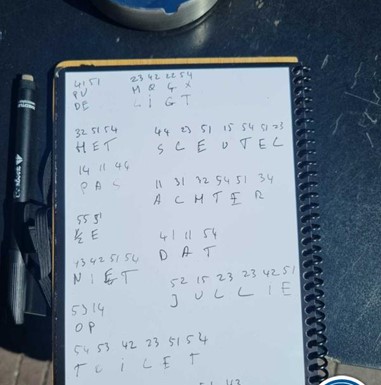 41 51 23 42 22 54
PU M Q G X
DE LIGT
32 51 54 44 23 51 15 54 51 23
HET SLEUTEL
14 11 44 11 31 32 54 51 34
PAS ACHTER
55 51 41 11 54
ZE DAT
43 42 51 54 52 15 23 23 42 51
NIET JULLIE
53 14
OP
54 53 42 23 51 54
TOILET
51 43